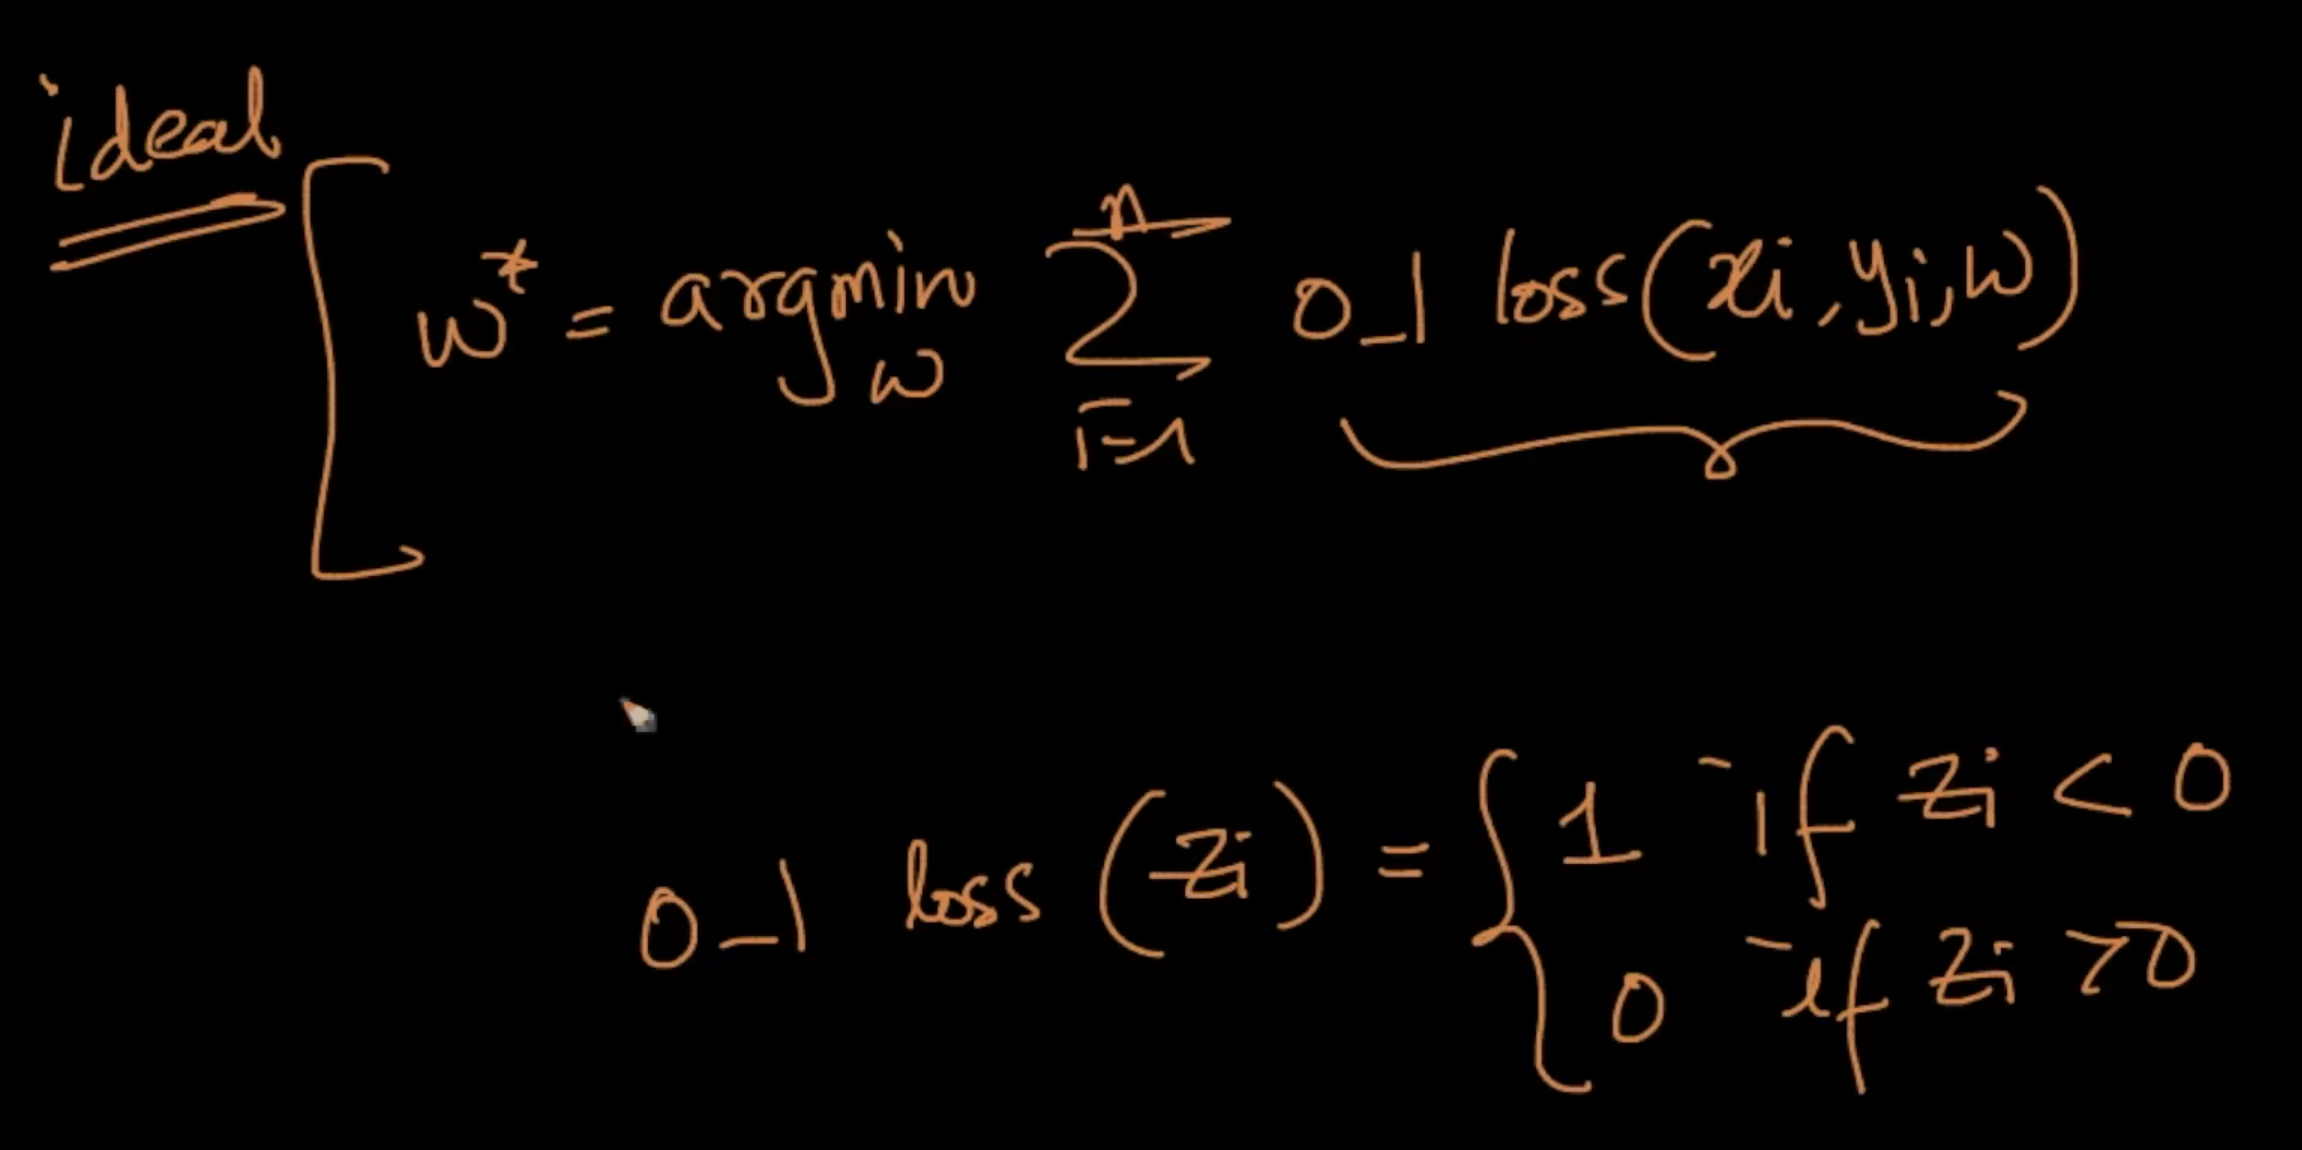 ideal
w* = argmin w n Σ i=1 0_1 loss(xi, yi, w)
0_1 loss (zi) = { 1 if zi < 0
0 if zi > 0